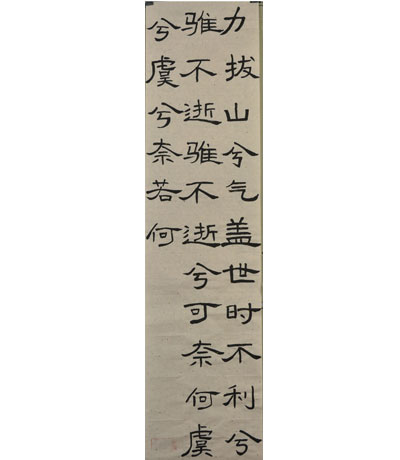 力拔山兮气盖世时不利兮
骓不逝骓不逝兮可奈何虞
兮虞兮奈若何